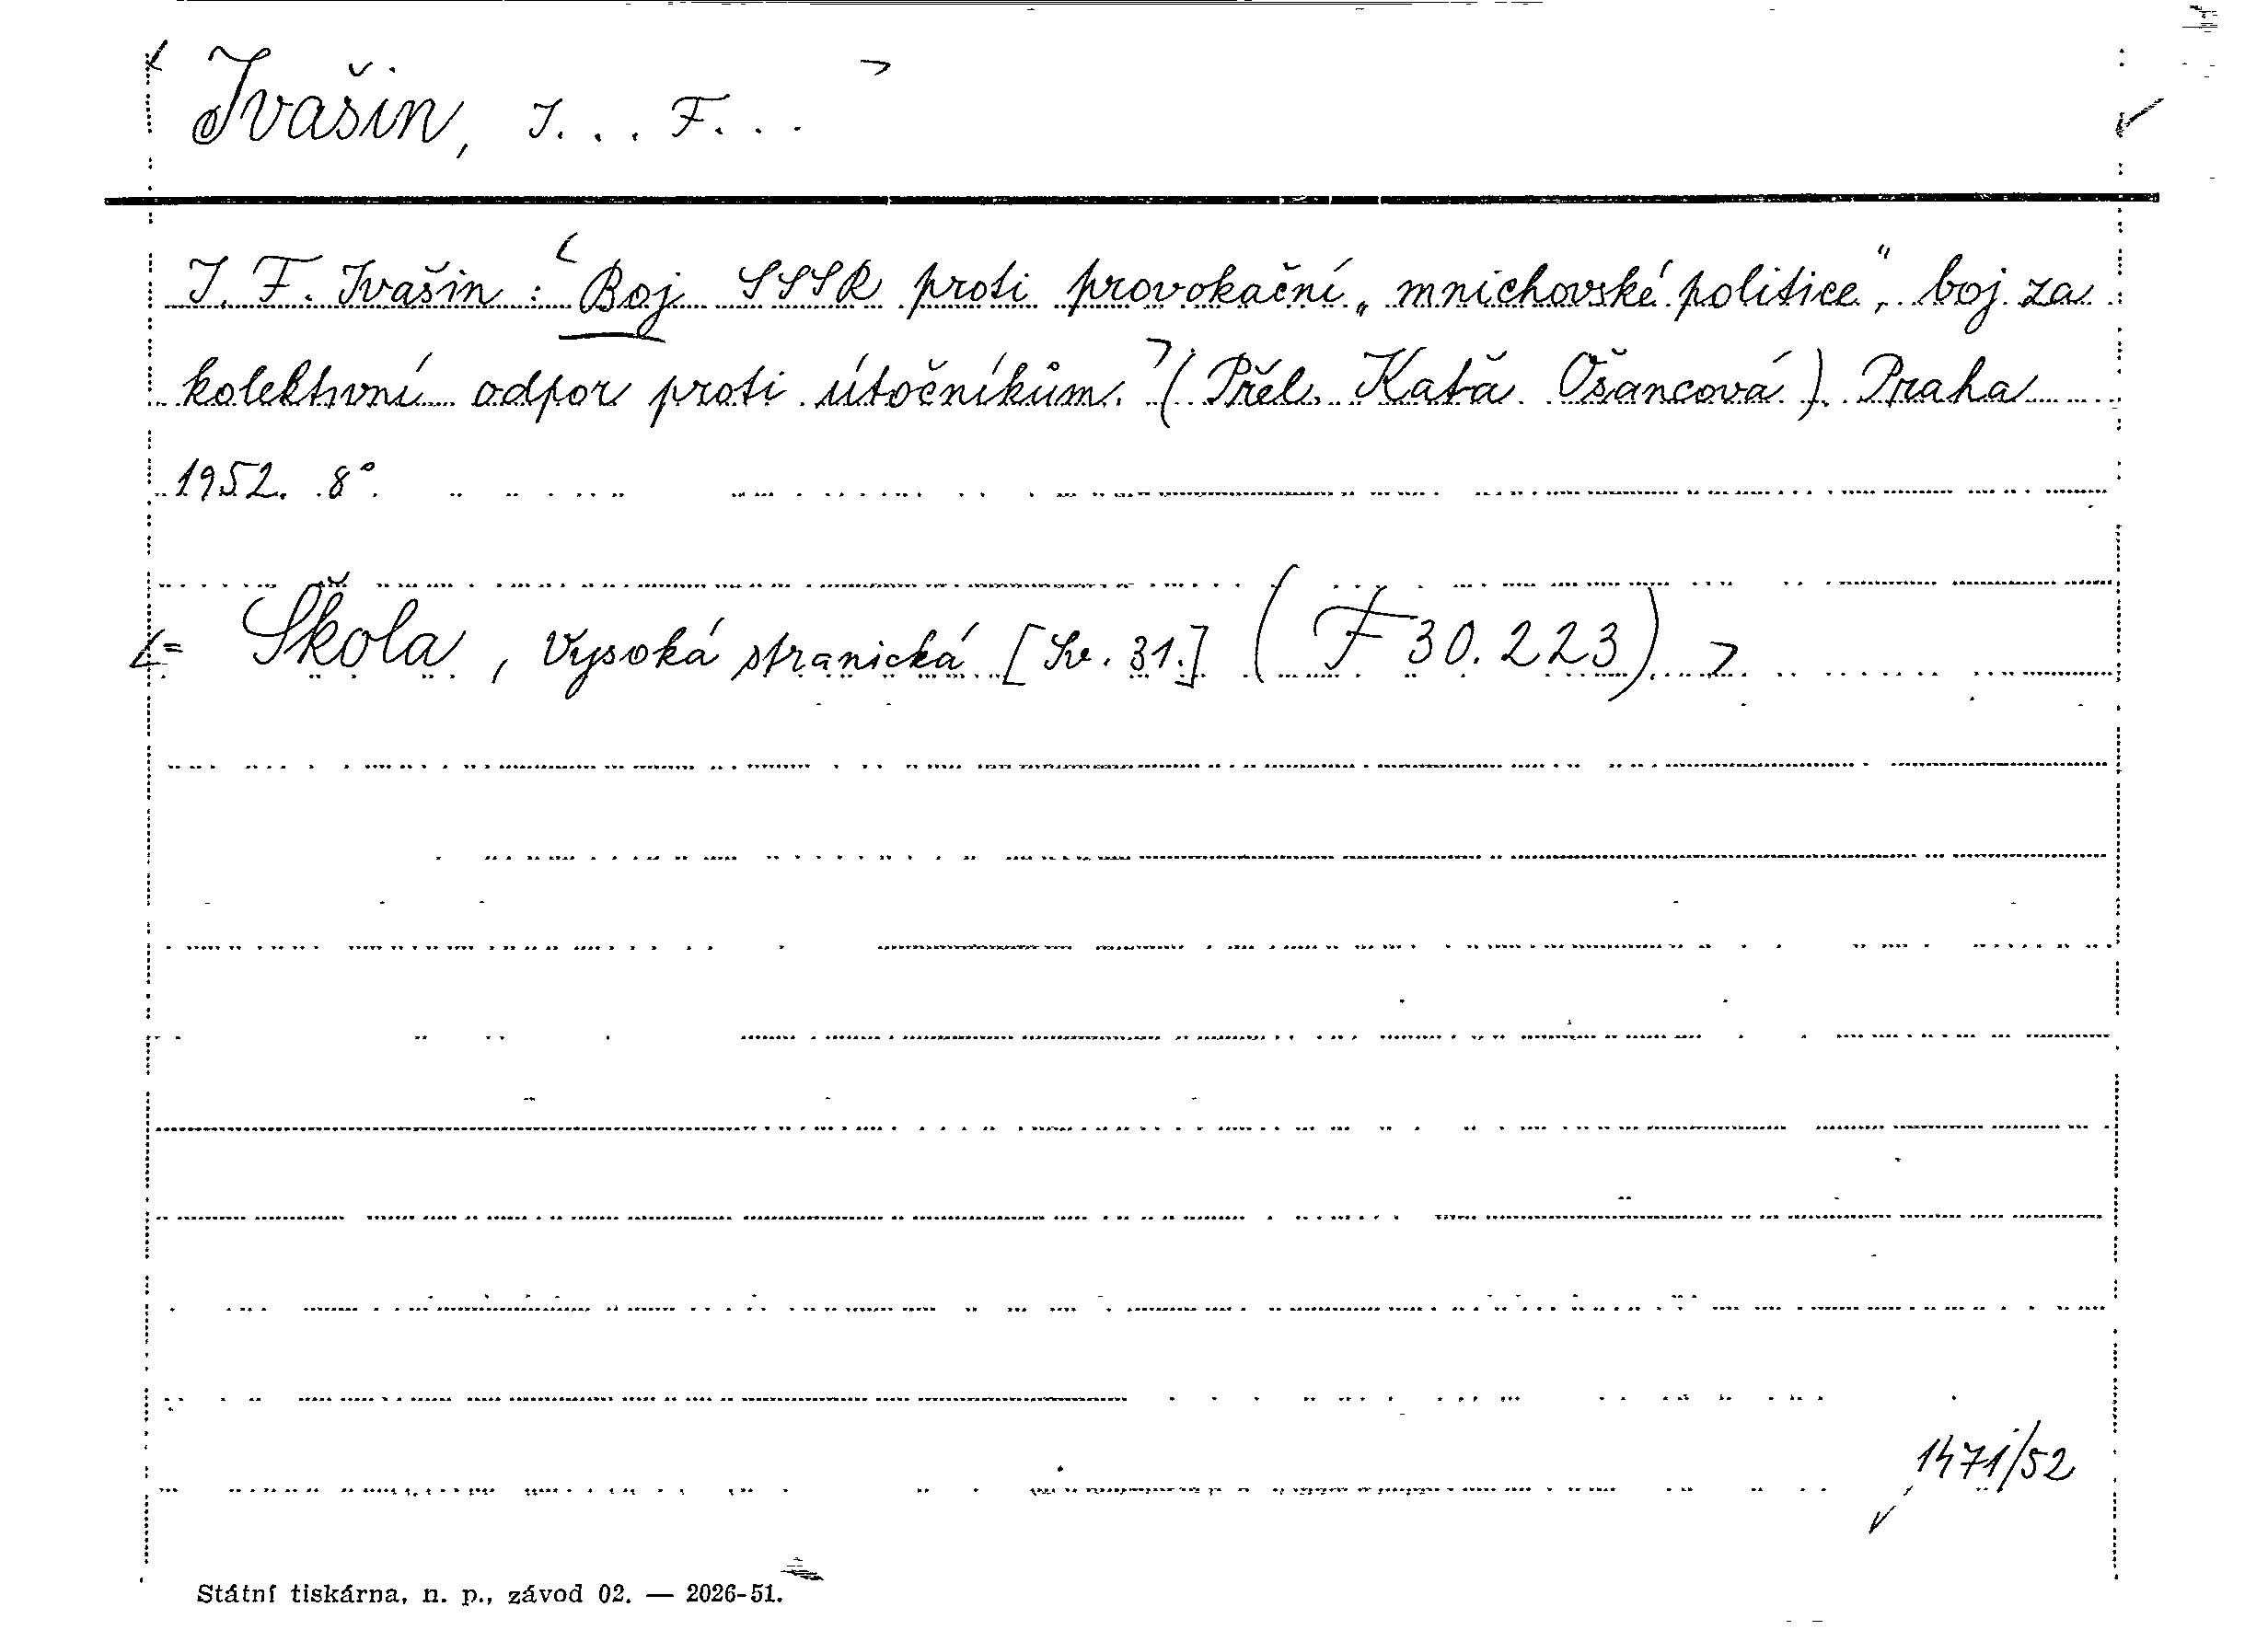 Ivašin, I... F...
I. F. Ivašin : Boj SSSR proti provokační „mnichovské politice", boj za
kolektivní odpor proti útočníkům. (Přel. Káťa Ošancová). Praha
1952. 8°.
= Škola, Vysoká stranická [Sv. 31.] (F 30.223)
1471/52
Státní tiskárna, n. p., závod 02. — 2026-51.